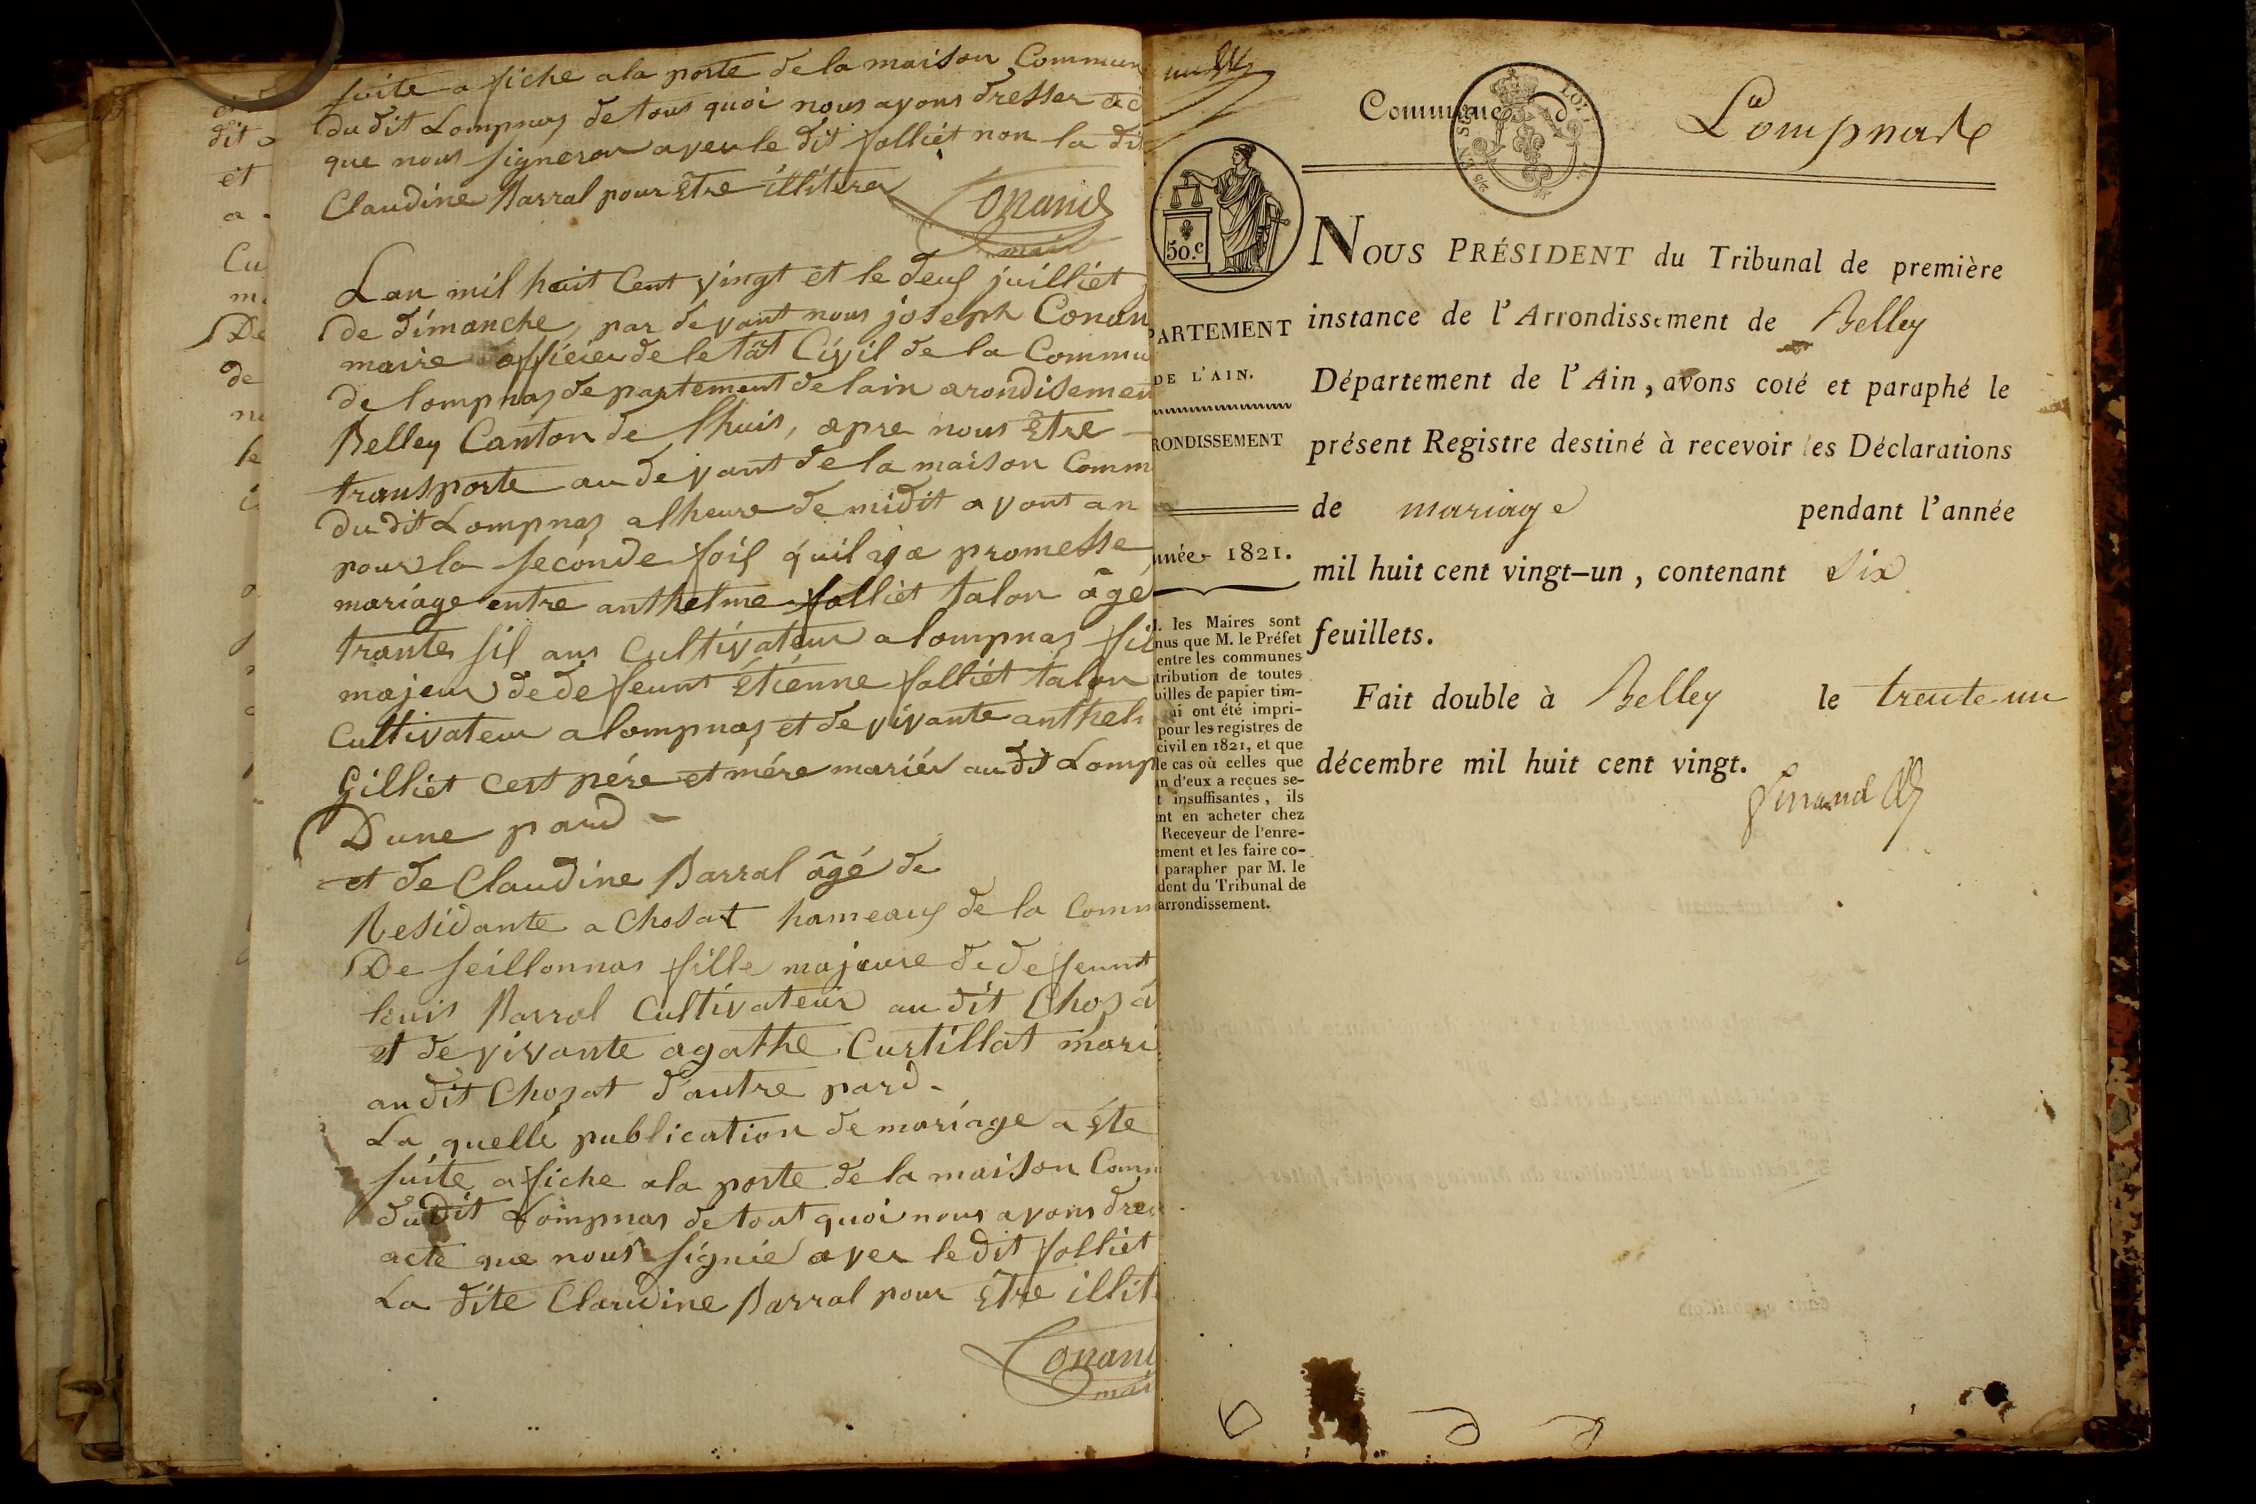 suite afiche a la porte de la maison Commun
du dit Lompnas de tous quoi nous avons dresser ac
que nous signeron avec le dit folliet non la dit
Claudine Barral pour Etre illitere
Conand
maire
Lan mil huit Cent vingt et le deuf juilliet
de dimanche, par devant nous joseph Conan
maire officier de letât Civil de la Commu
de lompnas departement de lain arondisemen
Belley Canton de lhuis, apre nous Etre
transporte au devant de la maison Comm
du dit Lompnas alheure de midit avont an
pour la seconde fois quil ija promesse
mariage entre anthelme folliet talon âgé
trante sil ans Cultivateur a lompnas fil
majeur de defeunt Étienne folliet talon
Cultivateur a lompnas et de vivante anthel
Gilliet Cest pére et mére mariés au dit Lomp
Dune pard
et de Claudine Barral âgé de
Residante a Chosat hameauf de la Comm
De seillonnas fille majeure de defeunt
louis Barral Cultivateur au dit Chosa
et de vivante agathe Curtillat mari
au dit Chosat dautre pard
La quelle publication de mariage a éte
suite afiche a la porte de la maison Comm
du dit Lompnas de tout quoi nous avons dre
acte que nous signié avec le dit folliet
La dite Claudine Barral pour Etre illit
Conan
mai
dit
et
a
Cu
m
De
de
le
un
Commune d Lompnas
50.c
PARTEMENT
DE L'AIN.
RONDISSEMENT
nnée 1821.
M. les Maires sont
nus que M. le Préfet
entre les communes
tribution de toutes
uilles de papier tim-
ui ont été impri-
pour les registres de
civil en 1821, et que
le cas où celles que
un d'eux a reçues se-
t insuffisantes, ils
nt en acheter chez
Receveur de l'enre-
ement et les faire co-
parapher par M. le
dent du Tribunal de
arrondissement.
NOUS PRÉSIDENT du Tribunal de première
instance de l'Arrondissement de Belley
Département de l'Ain, avons coté et paraphé le
présent Registre destiné à recevoir les Déclarations
de mariage pendant l'année
mil huit cent vingt-un, contenant Six
feuillets.
Fait double à Belley le trente un
décembre mil huit cent vingt.